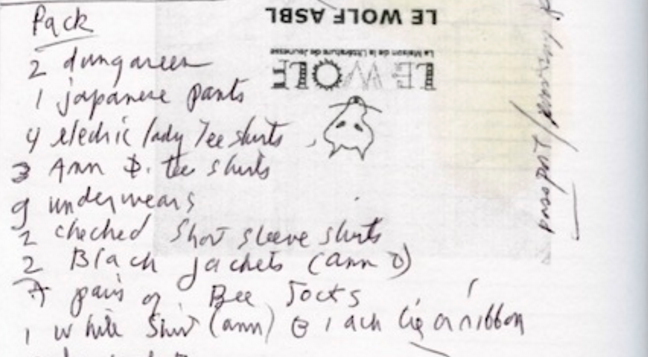 Pack
2 dungarees
1 japanese pants
4 electric lady Tee shirts
3 Ann D. tee shirts
9 underwears
2 checked short sleeve shirts
2 Black jackets (ann D)
7 pairs of Bee Socks
1 white shirt (ann) Black ribbon
LE WOLF ASBL
La Maison de la Littérature de Jeunesse
LE WOLF
passport /